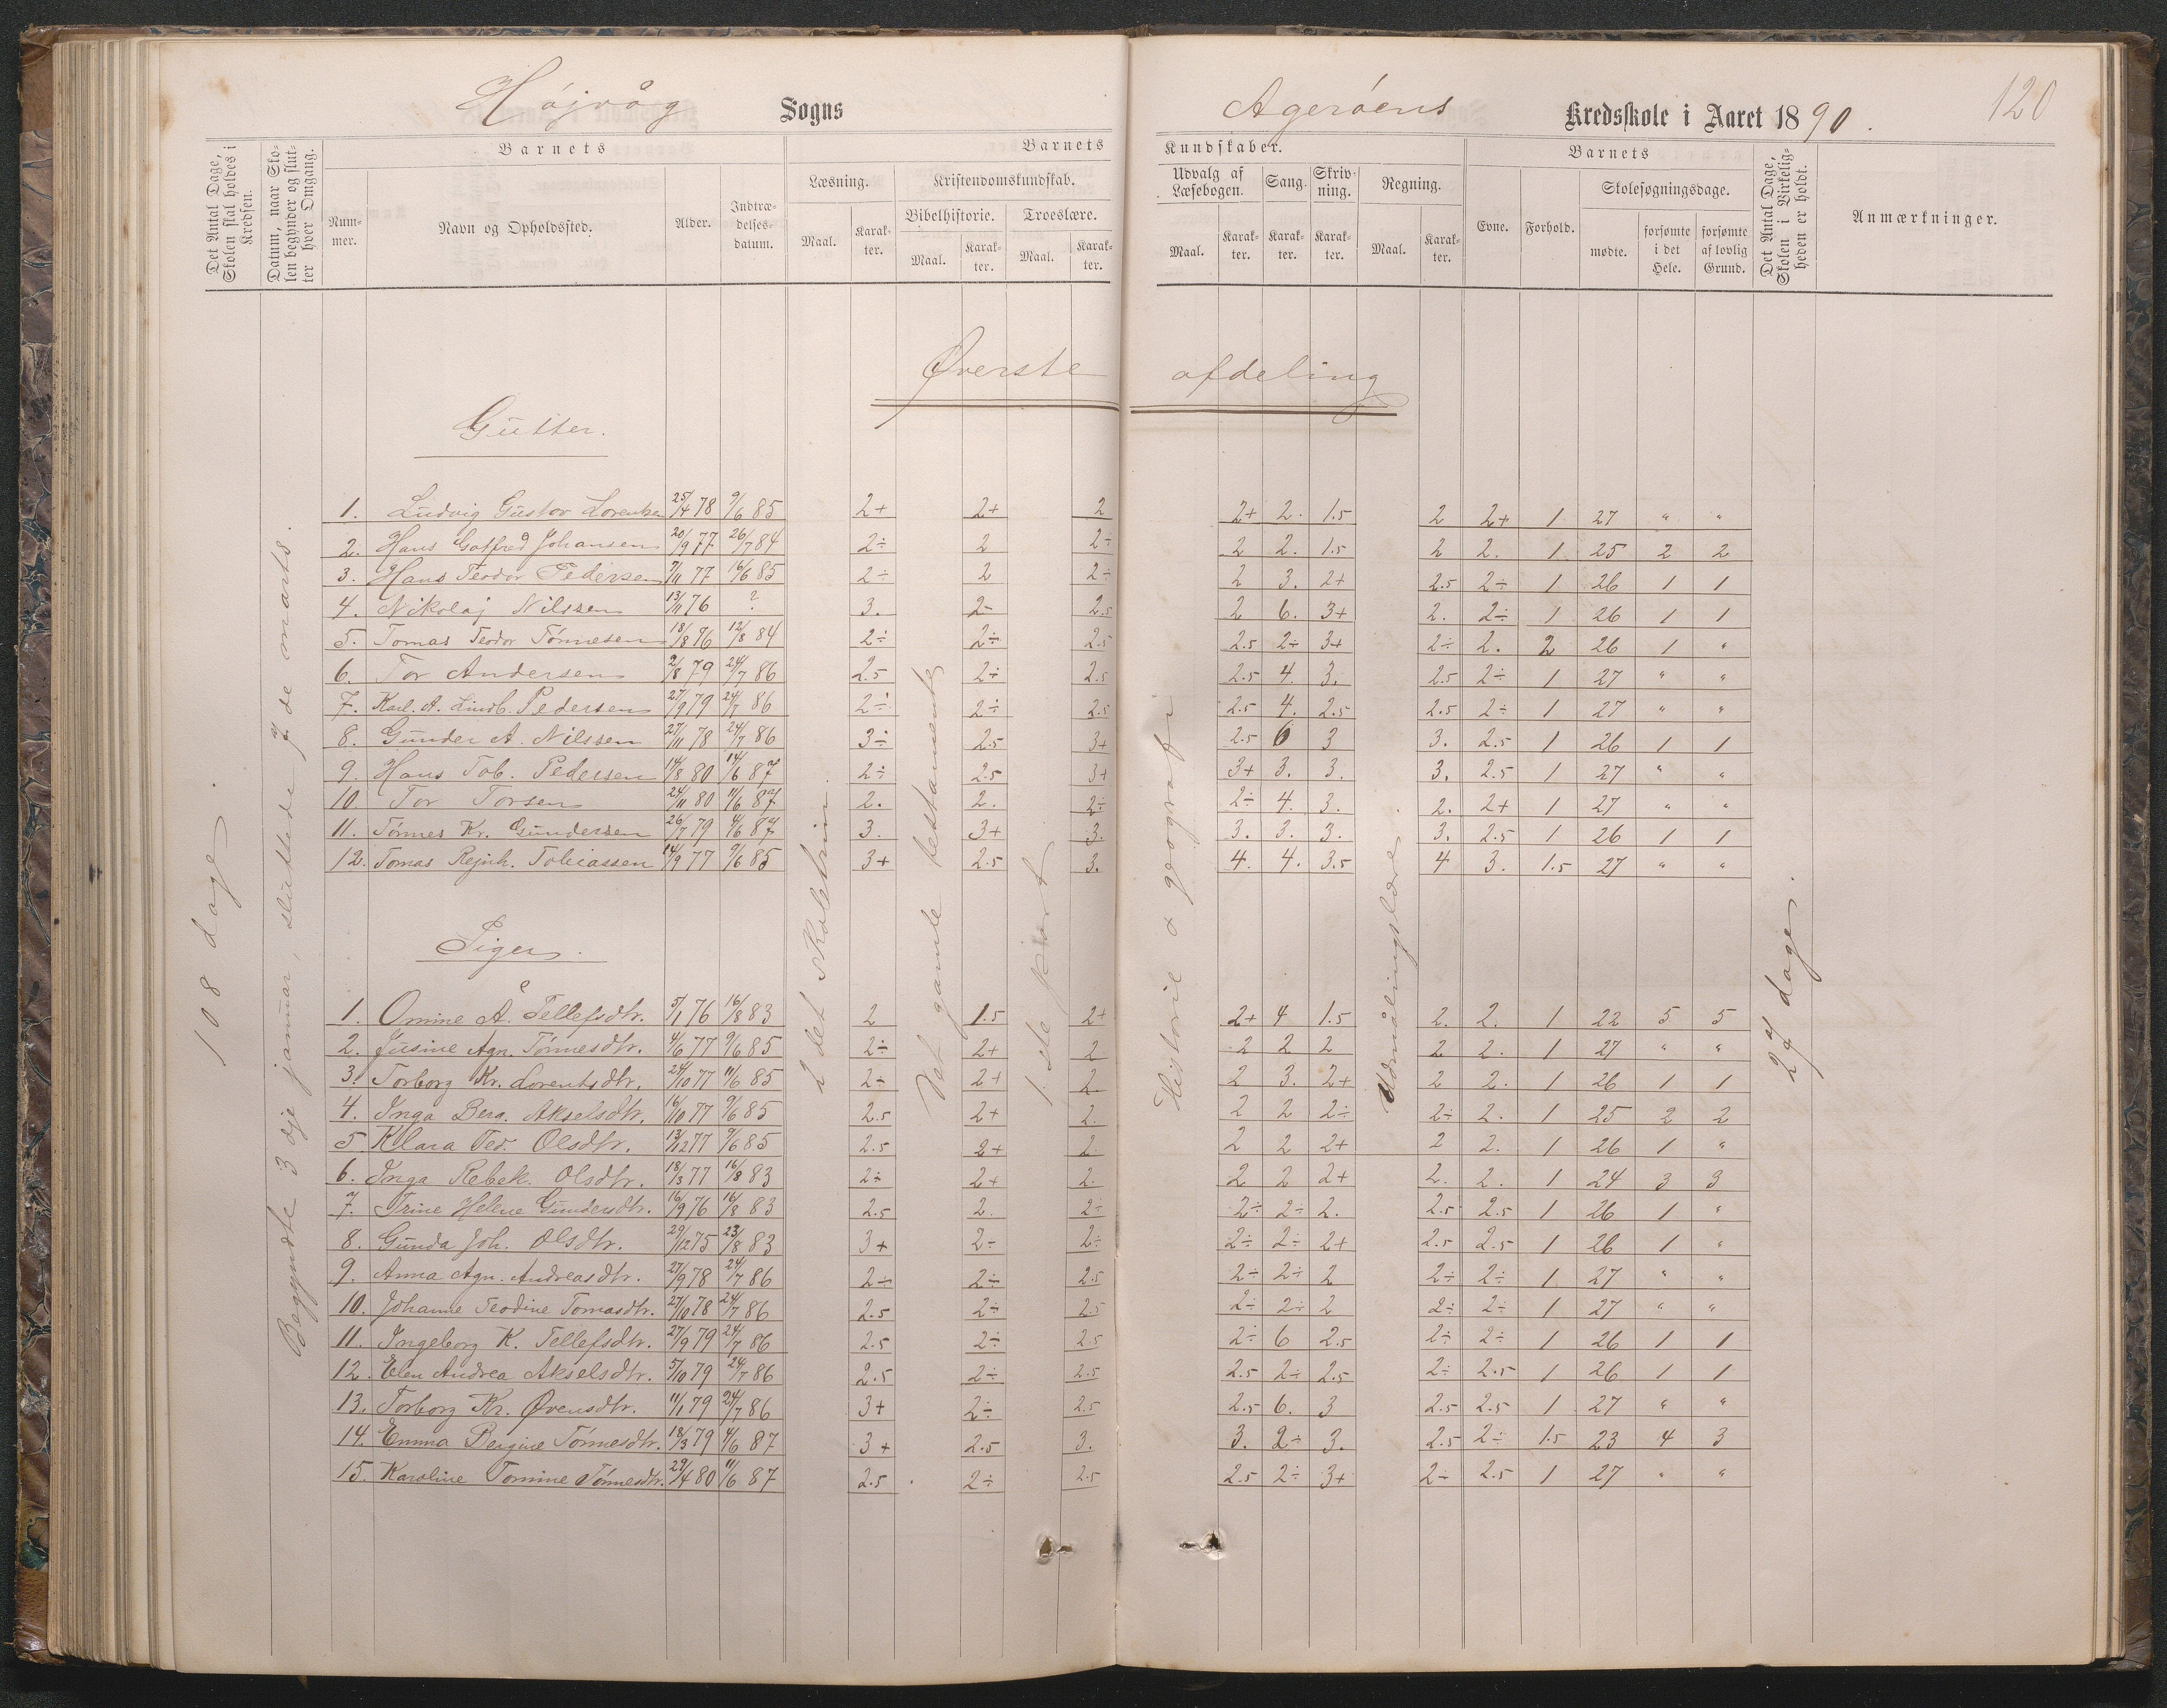 Højvåg Sogns Agerøens Kredsskole i Aaret 1890. 120
Det Antal Dage, Skolen skal holdes i Kredsen.
Datum, naar Skolen begynder og slutter hver Omgang.
Barnets
Nummer.
Navn og Opholdssted.
Alder.
Indtrædelsesdatum.
Barnets Kundskaber.
Læsning.
Maal.
Karakter.
Kristendomskundskab.
Bibelhistorie.
Maal.
Karakter.
Troeslære.
Maal.
Karakter.
Udvalg af Læsebogen.
Maal.
Karakter.
Sang.
Karakter.
Skrivning.
Karakter.
Regning.
Maal.
Karakter.
Barnets
Evne.
Forhold.
Skolesøgningsdage.
mødte.
forsømte i det Hele.
forsømte af lovlig Grund.
Det Antal Dage, Skolen i Virkeligheden er holdt.
Anmærkninger.
Øverste afdeling
108 dage.
Begyndte 3dje januar, sluttede 7de marts.
2det skoletrin.
Det gamle testamente
1ste part
Historie & geografi
Udmålingslære.
27 dage.
Gutter.
1. Ludvig Gustav Lorentsen 25/4 78 9/6 85 2+ 2+ 2 2+ 2. 1.5 2 2+ 1 27 " "
2. Hans Gotfred Johansen 20/9 77 26/7 84 2÷ 2 2÷ 2 2. 1.5 2 2. 1 25 2 2
3. Hans Teodor Pedersen 7/11 77 16/6 85 2÷ 2 2÷ 2 3. 2+ 2.5 2÷ 1 26 1 1
4. Nikolaj Nilssen 13/11 76 ? 3. 2- 2.5 2 6. 3+ 2. 2÷ 1 26 1 1
5. Tomas Teodor Tønnesen 18/8 76 12/8 84 2÷ 2÷ 2.5 2.5 2÷ 3+ 2÷ 2. 2 26 1 "
6. Tor Andersen 2/8 79 24/7 86 2.5 2÷ 2.5 2.5 4. 3. 2.5 2÷ 1 27 " "
7. Karl. A. Lindb. Pedersen 27/9 79 24/7 86 2÷ 2÷ 2.5 2.5 4. 2.5 2.5 2÷ 1 27 " "
8. Gunder A. Nilssen 27/11 78 24/7 86 3÷ 2.5 3+ 2.5 6 3 3. 2.5 1 26 1 1
9. Hans Tob. Pedersen 14/8 80 14/6 87 2÷ 2.5 3+ 3+ 3. 3. 3. 2.5 1 27 " "
10. Tor Torsen 24/11 80 11/6 87 2. 2. 2÷ 2÷ 4. 3. 2. 2+ 1 27 " "
11. Tønnes Kr. Gundersen 26/7 79 4/6 87 3. 3+ 3. 3. 3. 3. 3. 2.5 1 26 1 1
12. Tomas Rejnh. Tobiassen 14/9 77 9/6 85 3+ 2.5 3. 4. 4. 3.5 4 3. 1.5 27 " "
Piger.
1. Omine Å. Tellefsdtr. 5/1 76 16/8 83 2 1.5 2+ 2+ 4 1.5 2. 2. 1 22 5 5
2. Jusine Agn. Tønnesdtr. 4/6 77 9/6 85 2÷ 2+ 2 2 2 2 2 2. 1 27 " "
3. Torborg Kr. Lorentsdtr. 24/10 77 11/6 85 2÷ 2+ 2. 2 3. 2+ 2 2. 1 26 1 1
4. Inga Berg. Akselsdtr. 16/10 77 9/6 85 2.5 2+ 2. 2 2 2÷ 2÷ 2. 1 25 2 2
5 Klara Ted. Olsdtr. 13/12 77 9/6 85 2.5 2+ 2. 2 2 2+ 2 2. 1 26 1 "
6. Inga Rebek. Olsdtr. 18/3 77 16/8 83 2÷ 2+ 2. 2 2 2+ 2. 2. 1 24 3 3
7. Trine Helene Gundersdtr. 16/9 76 16/8 83 2.5 2. 2÷ 2÷ 2÷ 2. 2.5 2.5 1 26 1 "
8. Gunda Joh. Olsdtr. 29/12 75 23/8 83 3+ 2÷ 2÷ 2÷ 2÷ 2+ 2.5 2.5 1 26 1 "
9. Anna Agn. Andreasdtr. 27/9 78 24/7 86 2÷ 2÷ 2.5 2÷ 2÷ 2 2÷ 2÷ 1 27 " "
10. Johanne Teodine Tomasdtr. 27/10 78 24/7 86 2.5 2÷ 2.5 2÷ 2÷ 2 2÷ 2÷ 1 27 " "
11. Ingeborg K. Tellefsdtr. 27/9 79 24/7 86 2.5 2÷ 2.5 2÷ 6 2.5 2÷ 2÷ 1 26 1 1
12. Elen Andrea Akselsdtr. 5/10 79 24/7 86 2.5 2÷ 2.5 2.5 2÷ 2.5 2÷ 2.5 1 26 1 1
13. Torborg Kr. Øvensdtr. 11/1 79 24/7 86 3+ 2÷ 2.5 2.5 6. 3 2.5 2.5 1 27 " "
14. Emma Bergine Tønnesdtr. 18/3 79 4/6 87 3+ 2.5 3. 3. 2÷ 3. 2.5 2÷ 1.5 23 4 3
15. Karoline Tomine Tønnesdtr. 29/4 80 11/6 87 2.5 2÷ 2.5 2.5 2÷ 3+ 2÷ 2.5 1 27 " "